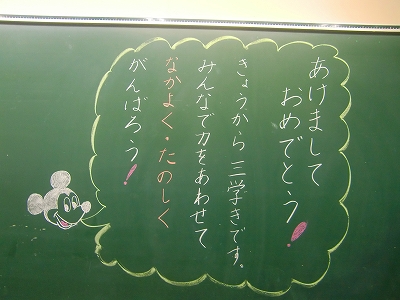 あけまして
おめでとう!
きょうから 三学きです。
みんなで力をあわせて
なかよく・たのしく
がんばろう!